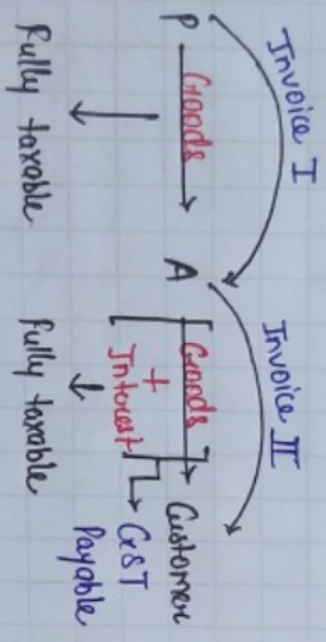 Invoice I
Invoice II
P Goods A [Goods Customer
+
Interest] GST
Payable
Fully taxable
fully taxable